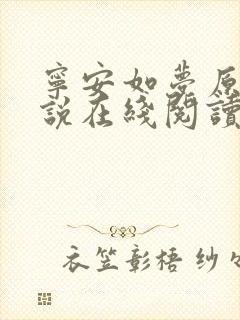 寧安如夢原
說在綫閱讀
衣笠彰梧 纱